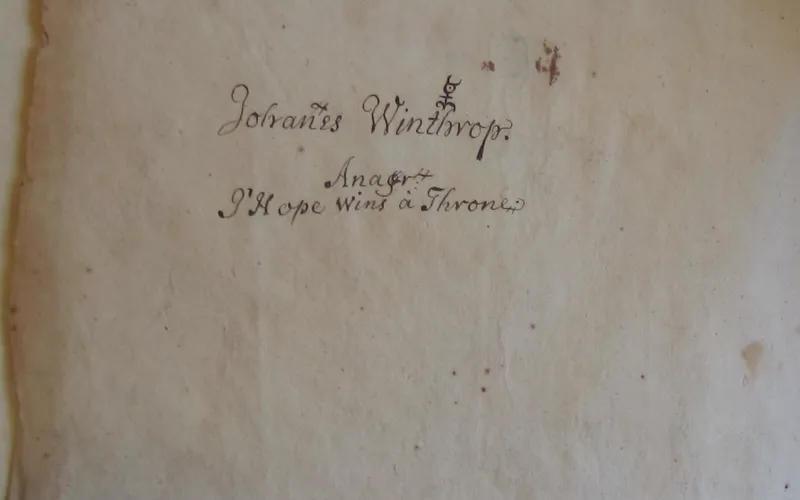 Johañes Winthrop.
Anagr:
J' Hope wins à Throne: